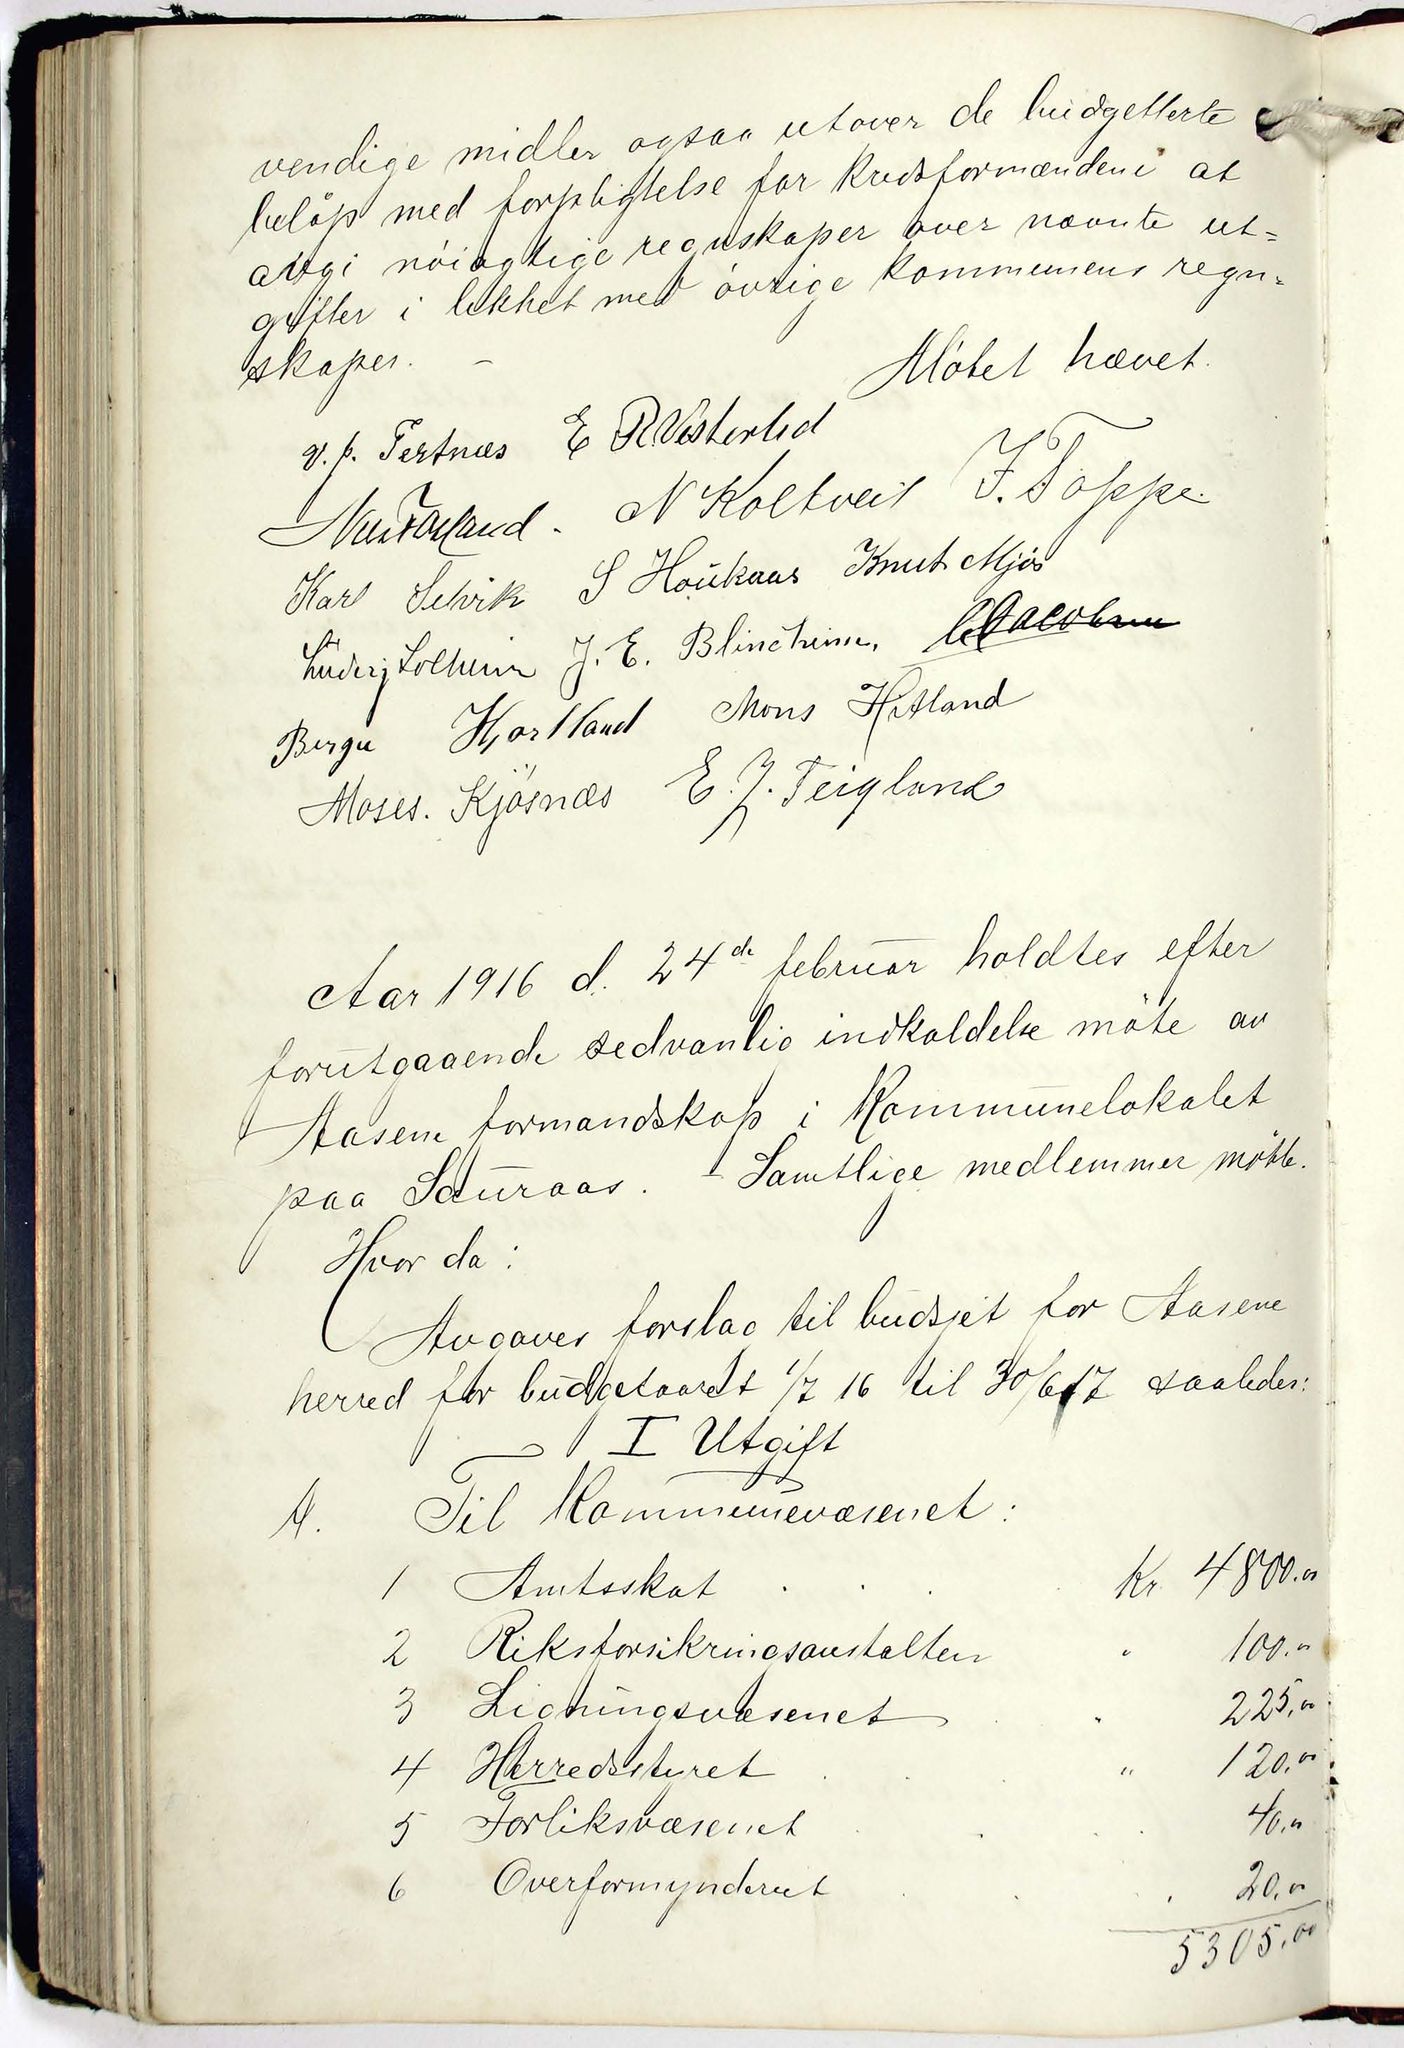 vendige midler ogsaa utover de budgetterte
beløp med forpligtelse for kredsformændene at
avgi nöiagtige regnskaper over nævnte ut=
gifter i likhet med övrige kommunens regn=
skaper. –
Mötet hævet.
v. p. Tertnæs E R Vesterlid
Nils Forland. N Koltveit F. Toppe.
Karl Selvik S Houkaas Knut Mjös
Ludvig Solheim J. E. Blindheim, Jacobsen
Berge Hjortland Mons Hitland
Moses. Kjösnæs E. J. Teigland
Aar 1916 d. 24de februar holdtes efter
forutgaaende sedvanlig indkaldelse möte av
Aasene formandskap i Kommunelokalet
paa Sauraas. – Samtlige medlemmer mötte.
Hvor da:
Avgaves forslag til budsjet for Aasene
herred for budgetaaret 1/7 16 til 30/6 17 saaledes:
I Utgift
A. Til Kommunevæsenet:
1 Amtsskat . . . Kr. 4800.00
2 Riksforsikringsanstalten " 100.00
3 Ligningsvæsenet " 225,00
4 Herredsstyret . . " 120,00
5 Forliksvæsenet . . . 40,00
6 Overformynderiet . . . 20,00
5305,00